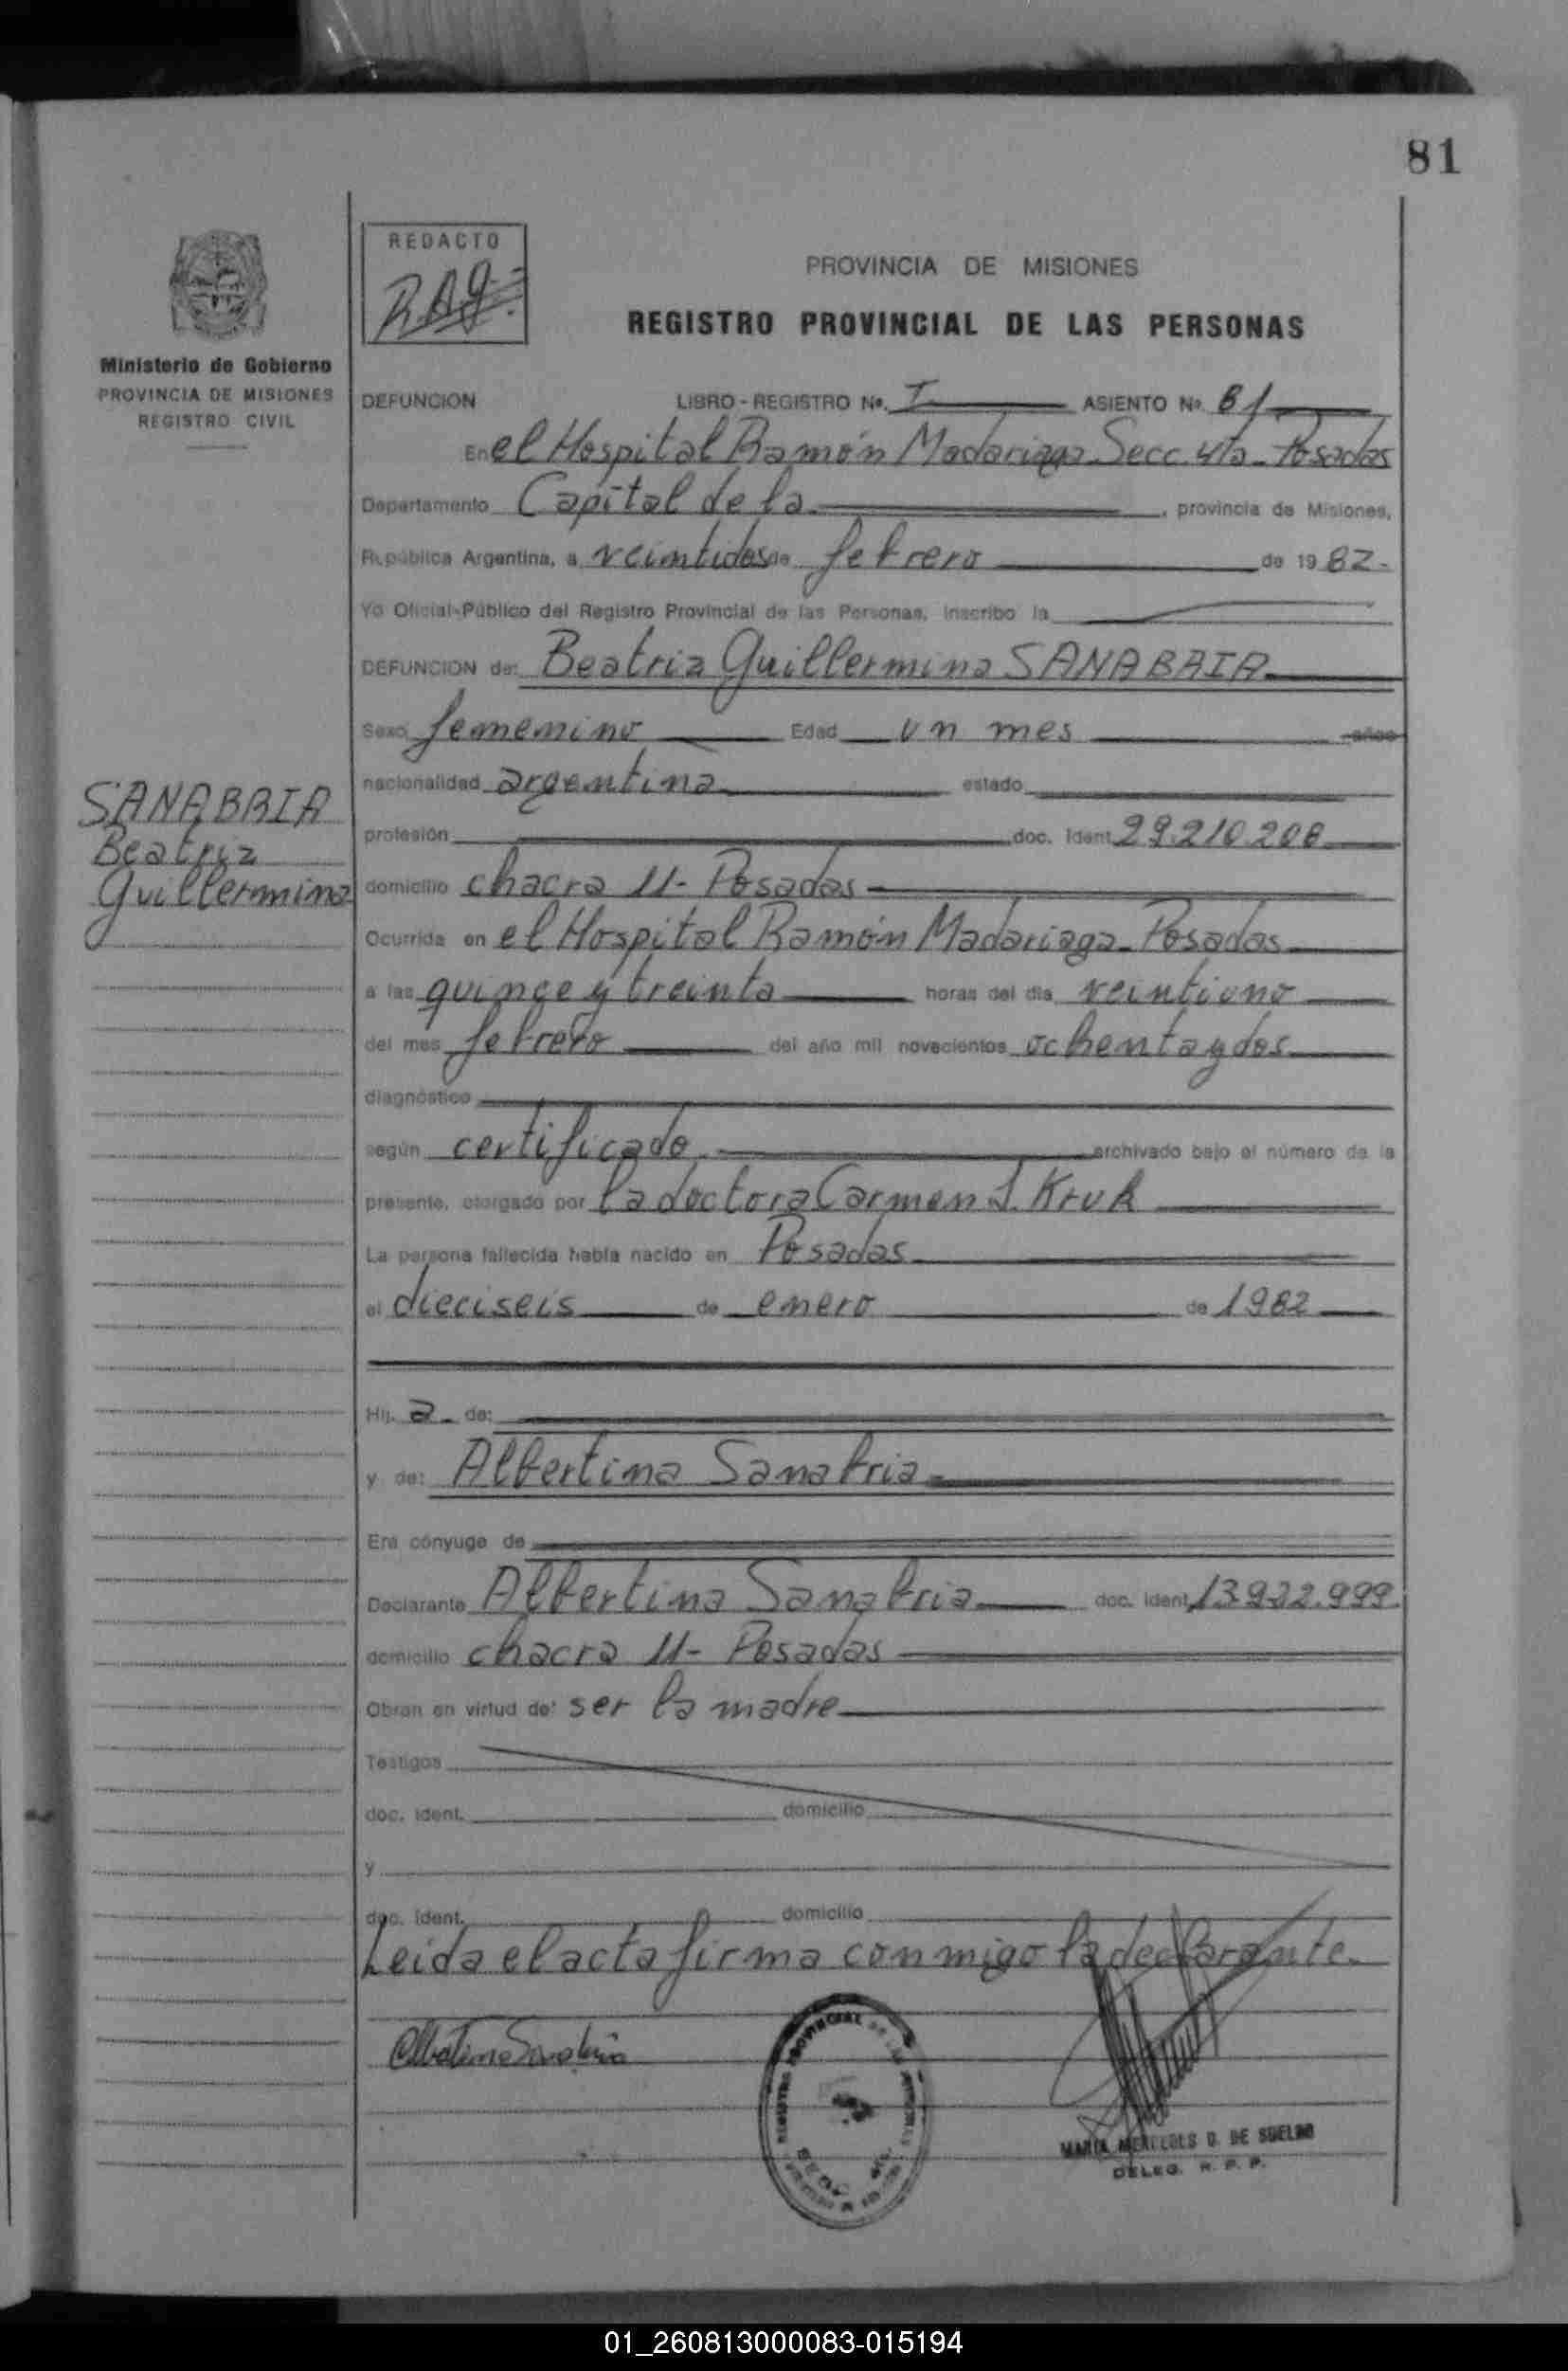 81
REDACTO
PROVINCIA DE MISIONES
REGISTRO PROVINCIAL DE LAS PERSONAS
Ministerio de Gobierno
PROVINCIA DE MISIONES
REGISTRO CIVIL
DEFUNCION LIBRO - REGISTRO No. I ASIENTO No 81
En el Hospital Ramón Madariaga Secc. 4ta - Posadas
Departamento Capital de la , provincia de Misiones,
República Argentina, a veintidos de febrero de 19 82.-
Yo Oficial Público del Registro Provincial de las Personas, inscribo la
DEFUNCION de: Beatriz Guillermina SANABRIA
Sexo femenino Edad un mes años
nacionalidad argentina estado
SANABRIA
Beatriz
Guillermina
profesión doc. Ident. 29.210.208
domicilio chacra 11- Posadas
Ocurrida en el Hospital Ramón Madariaga - Posadas
a las quince y treinta horas del día veintiuno
del mes febrero del año mil novecientos ochenta y dos
diagnóstico
según certificado archivado bajo el número de la
presente, otorgado por la doctora Carmen J. Kruk
La persona fallecida había nacido en Posadas
el dieciseis de enero de 1982
Hij a de:
y de: Albertina Sanabria
Era cónyuge de
Declarante Albertina Sanabria doc. Ident. 13.922.999.
domicilio chacra 11- Posadas
Obran en virtud de: ser la madre
Testigos
doc. Ident. domicilio
y
doc. Ident. domicilio
Leida el acta firma conmigo la declarante.
Albertina Sanabria
MARIA MERCEDES D. DE SUELDO
DELEG. R. P. P.
01_260813000083-015194